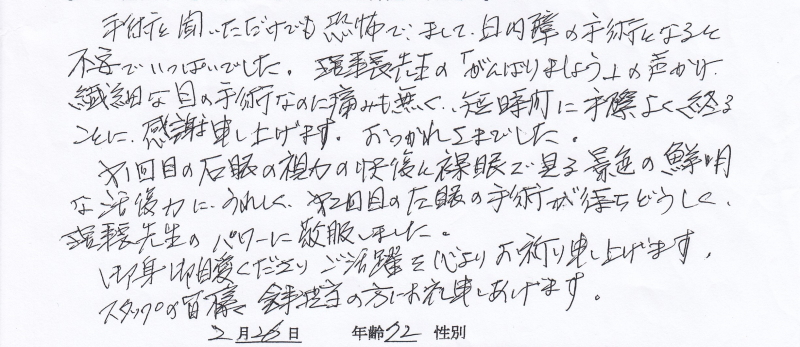 手術と聞いただけでも恐怖で、まして、白内障の手術となると
不安でいっぱいでした。理事長先生の「がんばりましょう」の声かけ、
繊細な目の手術なのに痛みも無く、短時間に手際よく終る
ことに、感謝申し上げます。おつかれさまでした。
第1回目の右眼の視力の快復に裸眼で見る景色の鮮明
な活復力に、うれしく、第2回目の左眼の手術が待ちどうしく、
理事長先生のパワーに敬服しました。
御身御自愛くださり ご活躍を心よりお祈り申し上げます。
スタッフの皆様、の方にお礼申しあげます。
2月26日 年齢72 性別